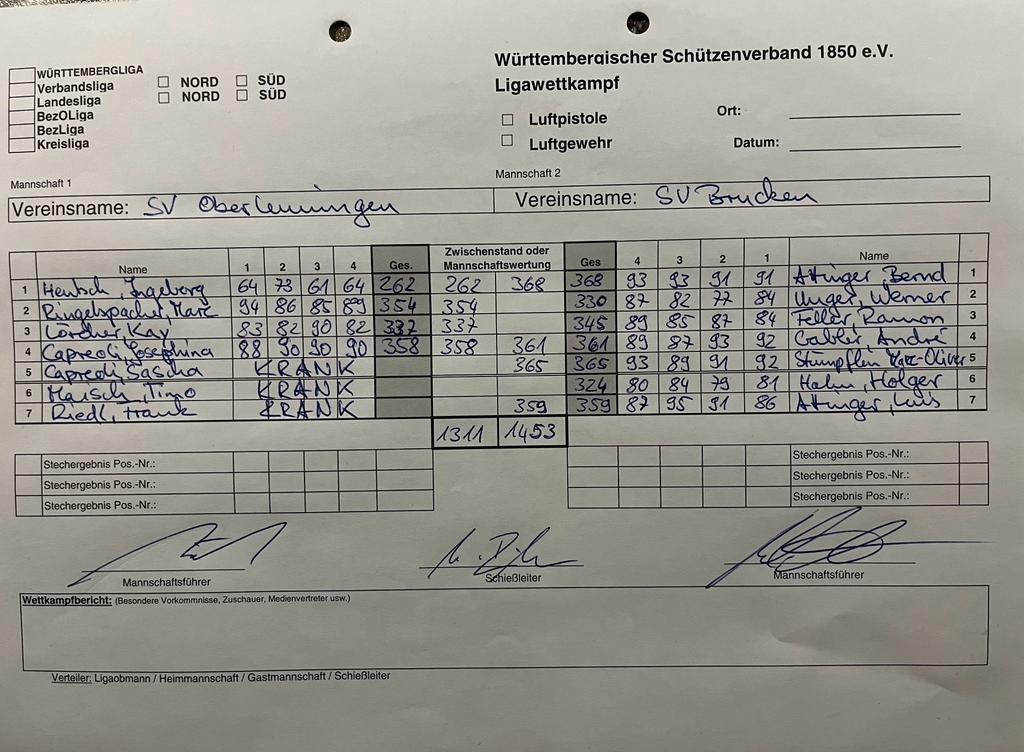 Württembergischer Schützenverband 1850 e.V.
WÜRTTEMBERGLIGA
Verbandsliga ☐ NORD ☐ SÜD
Landesliga ☐ NORD ☐ SÜD
BezOLiga
BezLiga
Kreisliga
Ligawettkampf
☐ Luftpistole Ort:
☐ Luftgewehr Datum:
Mannschaft 1 Mannschaft 2
Vereinsname: SV Oberlenningen Vereinsname: SV Brucken
Name 1 2 3 4 Ges. Zwischenstand oder Mannschaftswertung Ges 4 3 2 1 Name
1 Hentsch, Ingeborg 64 73 61 64 262 262 368 368 93 93 91 91 Attinger, Bernd 1
2 Ringelspacher, Marc 94 86 85 89 354 354 330 87 82 77 84 Unger, Werner 2
3 Lörcher, Kay 83 82 90 82 337 337 345 89 85 87 84 Feller, Ramon 3
4 Capreoli, Josephina 88 90 90 90 358 358 361 361 89 87 93 92 Gabler, André 4
5 Capreoli, Sascha KRANK 365 365 93 89 91 92 Stümpflen Marc-Oliver 5
6 Maisch, Timo KRANK 324 80 84 79 81 Hahn, Holger 6
7 Riedl, Frank KRANK 359 359 87 95 91 86 Attinger, Luis 7
1311 1453
Stechergebnis Pos.-Nr.: Stechergebnis Pos.-Nr.:
Stechergebnis Pos.-Nr.: Stechergebnis Pos.-Nr.:
Stechergebnis Pos.-Nr.: Stechergebnis Pos.-Nr.:
Mannschaftsführer Schießleiter Mannschaftsführer
Wettkampfbericht: (Besondere Vorkommnisse, Zuschauer, Medienvertreter usw.)
Verteiler: Ligaobmann / Heimmannschaft / Gastmannschaft / Schießleiter